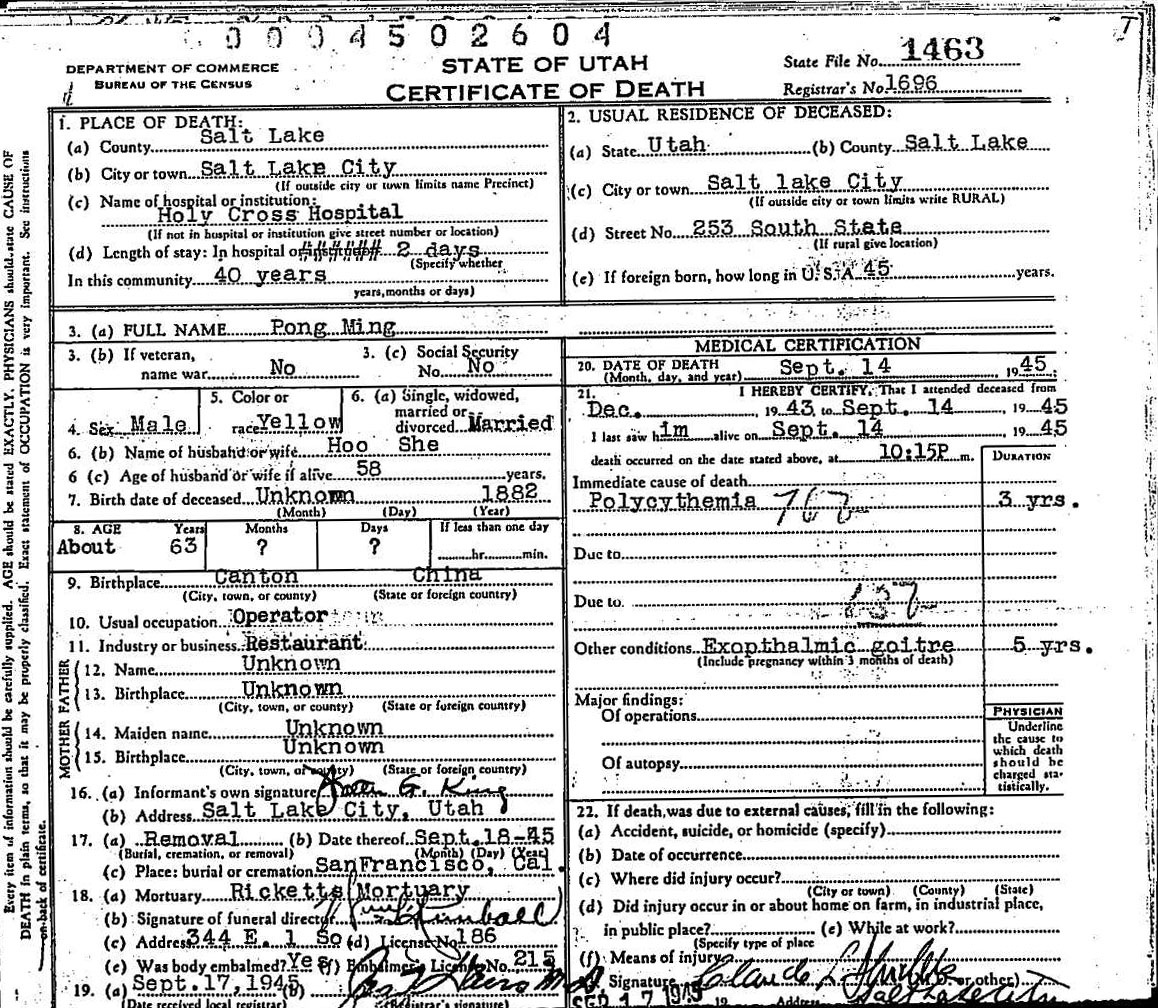 0004502604
7
DEPARTMENT OF COMMERCE
BUREAU OF THE CENSUS
STATE OF UTAH
CERTIFICATE OF DEATH
State File No. 1463
Registrar's No. 1696
Every item of information should be carefully supplied. AGE should be stated EXACTLY. PHYSICIANS should state CAUSE OF
DEATH in plain terms, so that it may be properly classified. Exact statement of OCCUPATION is very important. See instructions
on back of certificate.
1. PLACE OF DEATH:
(a) County Salt Lake
(b) City or town Salt Lake City
(If outside city or town limits name Precinct)
(c) Name of hospital or institution:
Holy Cross Hospital
(If not in hospital or institution give street number or location)
(d) Length of stay: In hospital or 2 days
(Specify whether
In this community 40 years
years, months or days)
2. USUAL RESIDENCE OF DECEASED:
(a) State Utah (b) County Salt Lake
(c) City or town Salt lake City
(If outside city or town limits write RURAL)
(d) Street No. 253 South State
(If rural give location)
(e) If foreign born, how long in U.S.A 45 years.
3. (a) FULL NAME Pong Ming
3. (b) If veteran,
name war No
3. (c) Social Security
No. No
4. Sex Male
5. Color or
race Yellow
6. (a) Single, widowed,
married or
divorced Married
6. (b) Name of husband or wife Hoo She
6 (c) Age of husband or wife if alive 58 years.
7. Birth date of deceased Unknown 1882
(Month) (Day) (Year)
8. AGE Years Months Days If less than one day
About 63 ? ? hr. min.
9. Birthplace Canton China
(City, town, or county) (State or foreign country)
10. Usual occupation Operator
11. Industry or business Restaurant
FATHER
12. Name Unknown
13. Birthplace Unknown
(City, town, or county) (State or foreign country)
MOTHER
14. Maiden name Unknown
15. Birthplace Unknown
(City, town, or county) (State or foreign country)
16. (a) Informant's own signature G. King
(b) Address Salt Lake City, Utah
17. (a) Removal (b) Date thereof Sept.18-45
(Burial, cremation, or removal) (Month) (Day) (Year)
(c) Place: burial or cremation SanFrancisco, Cal.
18. (a) Mortuary Ricketts Mortuary
(b) Signature of funeral director Kimball
(c) Address 344 E. 1 So (d) License No. 186
(e) Was body embalmed? Yes (f) Embalmer License No. 215
19. (a) Sept.17,1945 (b)
(Date received local registrar) (Registrar's signature)
MEDICAL CERTIFICATION
20. DATE OF DEATH Sept. 14 1945
(Month, day, and year)
21. I HEREBY CERTIFY, That I attended deceased from
Dec. 1943 to Sept. 14, 1945
I last saw him alive on Sept. 14, 1945
death occurred on the date stated above, at 10:15P m.
DURATION
Immediate cause of death
Polycythemia 3 yrs.
Due to
Due to
Other conditions Exopthalmic goitre 5 yrs.
(Include pregnancy within 3 months of death)
Major findings:
Of operations
Of autopsy
PHYSICIAN
Underline
the cause to
which death
should be
charged sta-
tistically.
22. If death was due to external causes, fill in the following:
(a) Accident, suicide, or homicide (specify)
(b) Date of occurrence
(c) Where did injury occur?
(City or town) (County) (State)
(d) Did injury occur in or about home on farm, in industrial place,
in public place? (e) While at work?
(Specify type of place
(f) Means of injury
Signature Claude L. Shields or other)
SEP 17 1945 19 Address Salt Lake